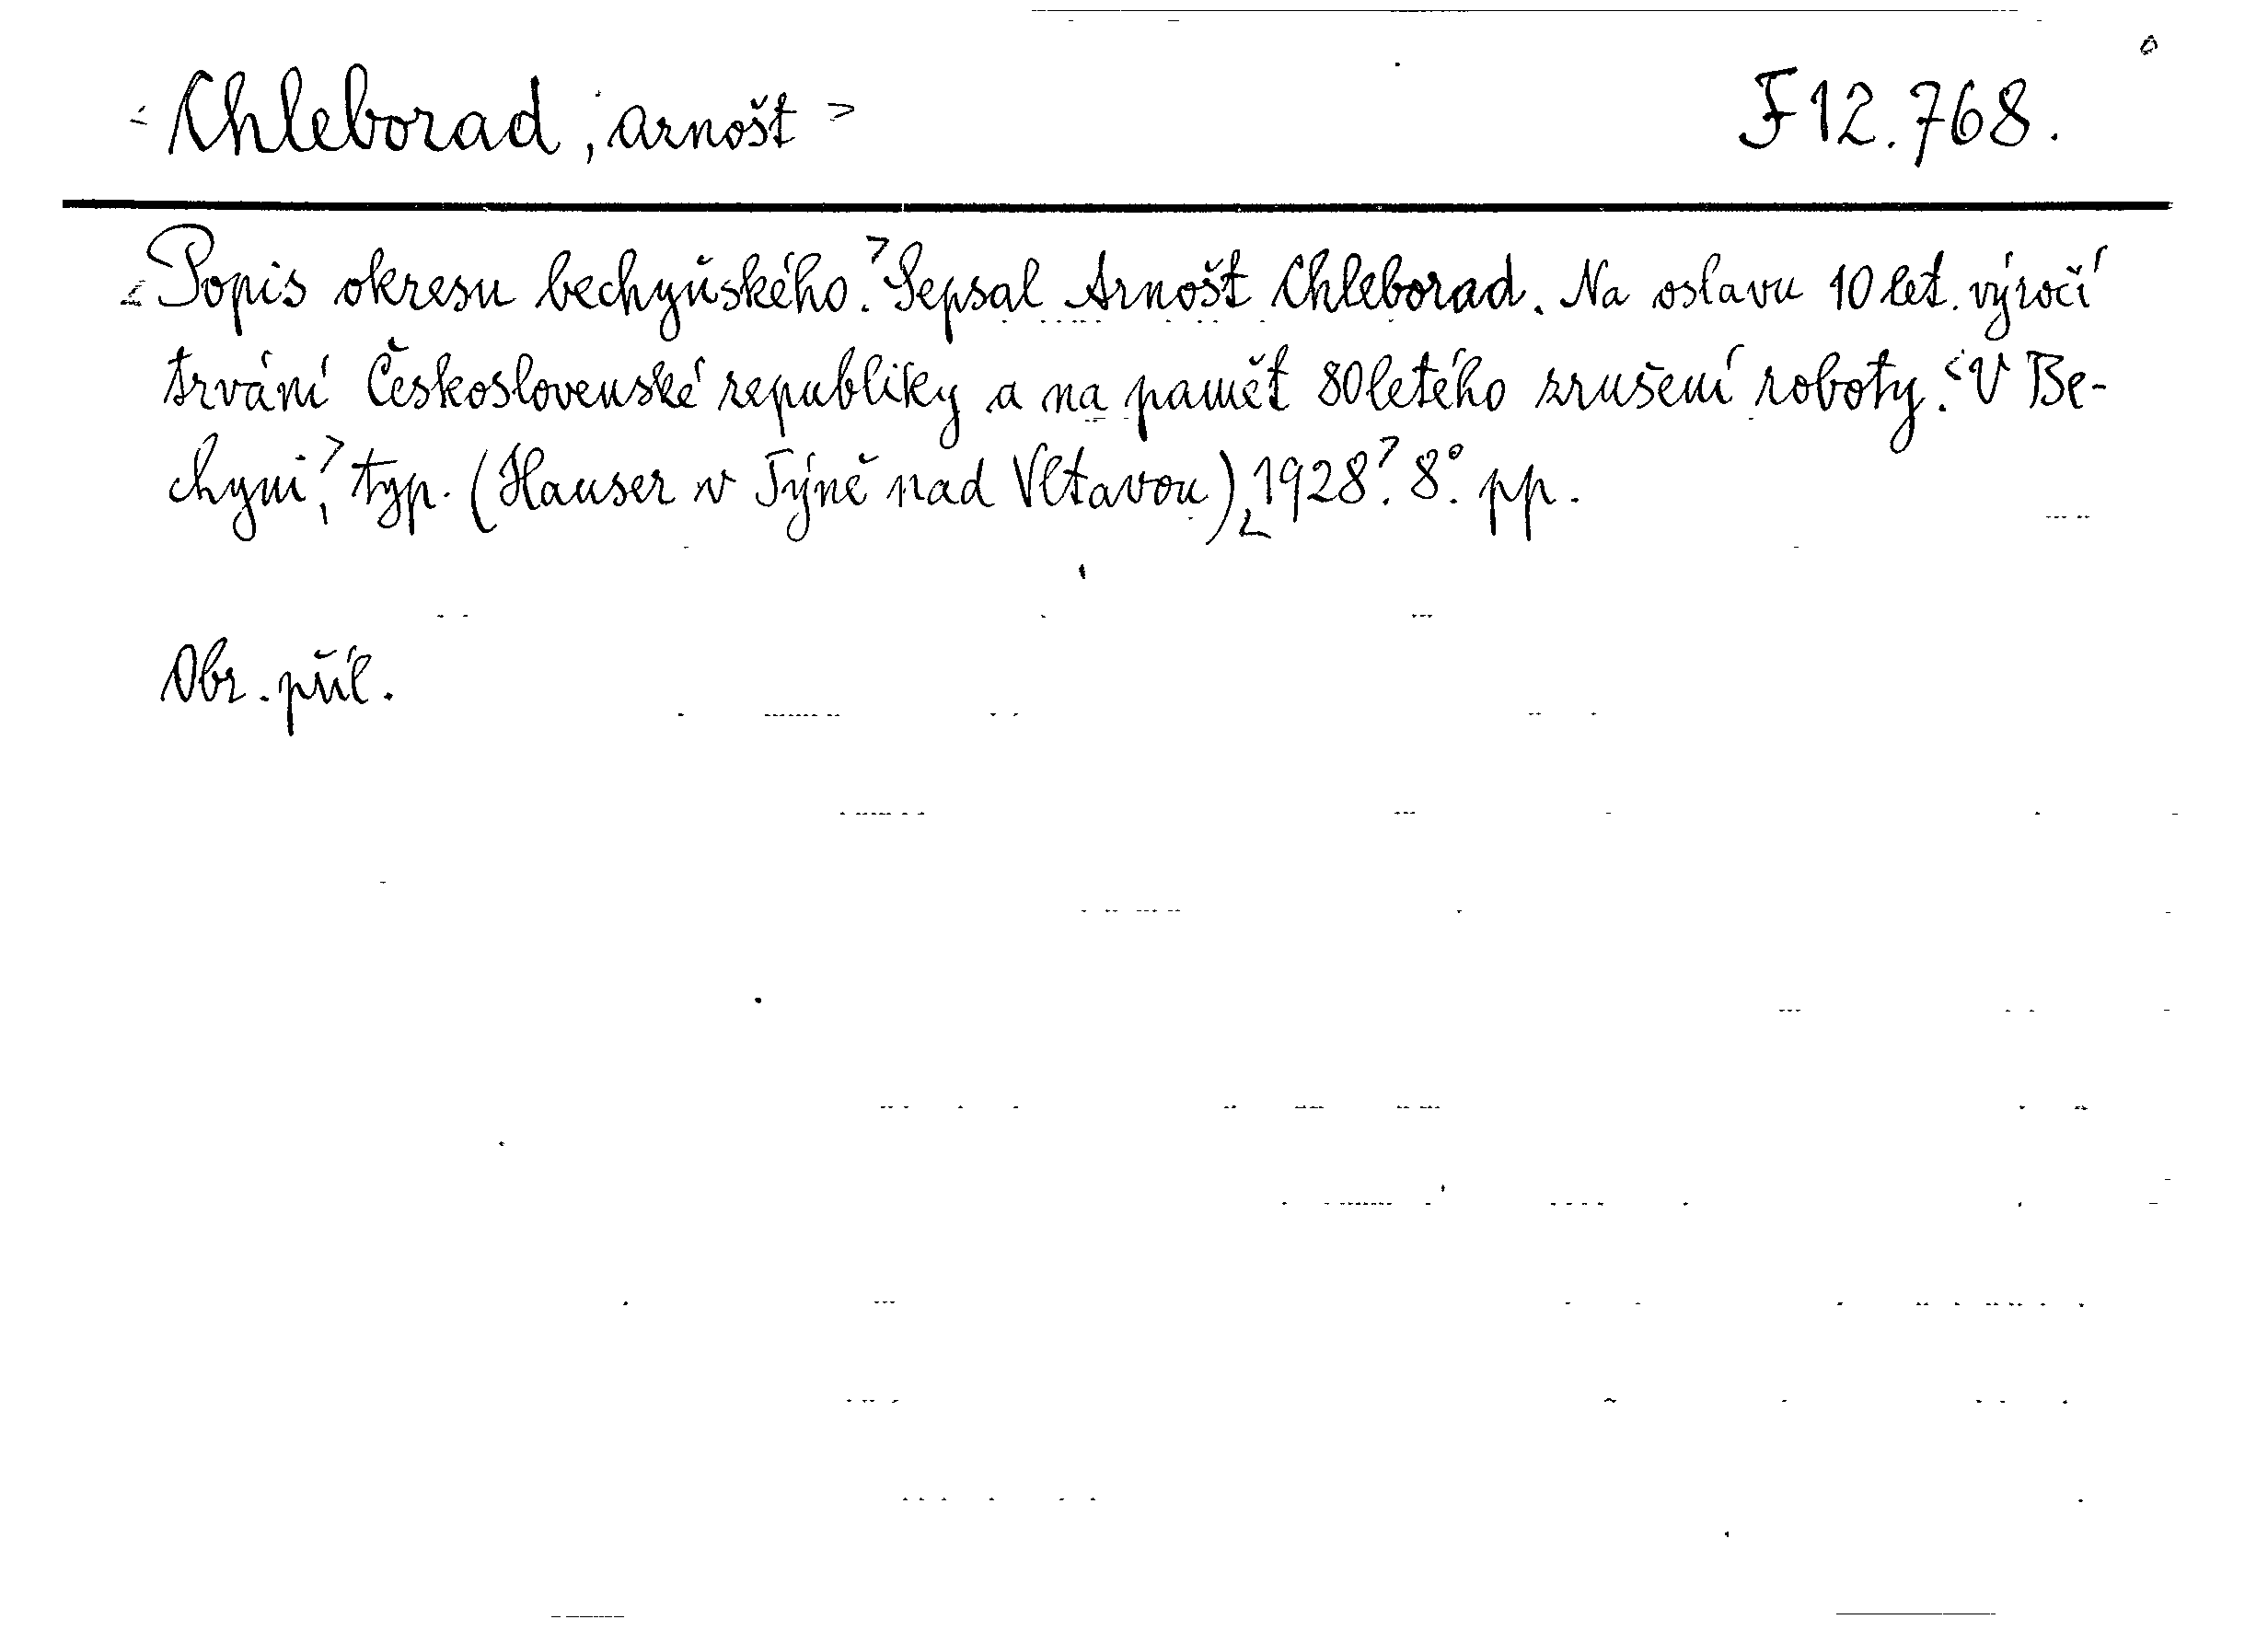 <Chleborad, Arnošt> F 12.768.
<Popis okresu bechyňského.> Sepsal Arnošt Chleborad. Na oslavu 10 let. výročí
trvání Československé republiky a na paměť 80letého zrušení roboty. <V Be-
chyni>, typ. (Hauser v Týně nad Vltavou), <1928>. 8°. pp.
Obr. příl.